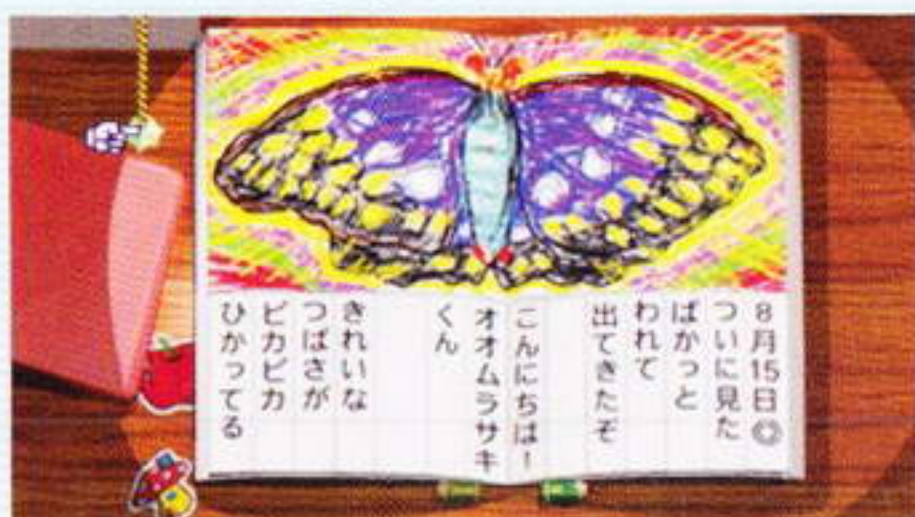 8月15日◎
ついに見た
ぱかっと
われて
出てきたぞ
こんにちは!
オオムラサキ
くん
きれいな
つばさが
ピカピカ
ひかってる